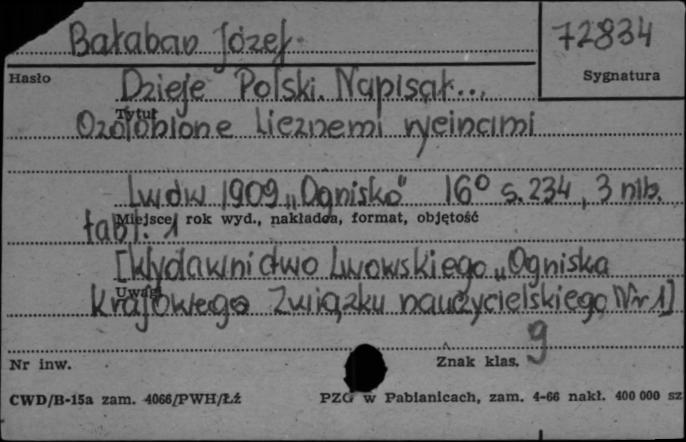 Bałaban Józef.
72834
Hasło
Sygnatura
Dzieje Polski. Napisał...
Tytuł
Ozdobione licznemi rycinami
Lwów 1909 „Ognisko" 16° s. 234, 3 nlb.
Miejsce, rok wyd., nakładca, format, objętość
tabl. 1
[Wydawnictwo Lwowskiego „Ogniska
Uwagi
Krajowego Związku nauczycielskiego Nr 1]
9
Nr inw.
Znak klas.
CWD/B-15a zam. 4066/PWH/Łź
PZG w Pabianicach, zam. 4-66 nakł. 400 000 sz